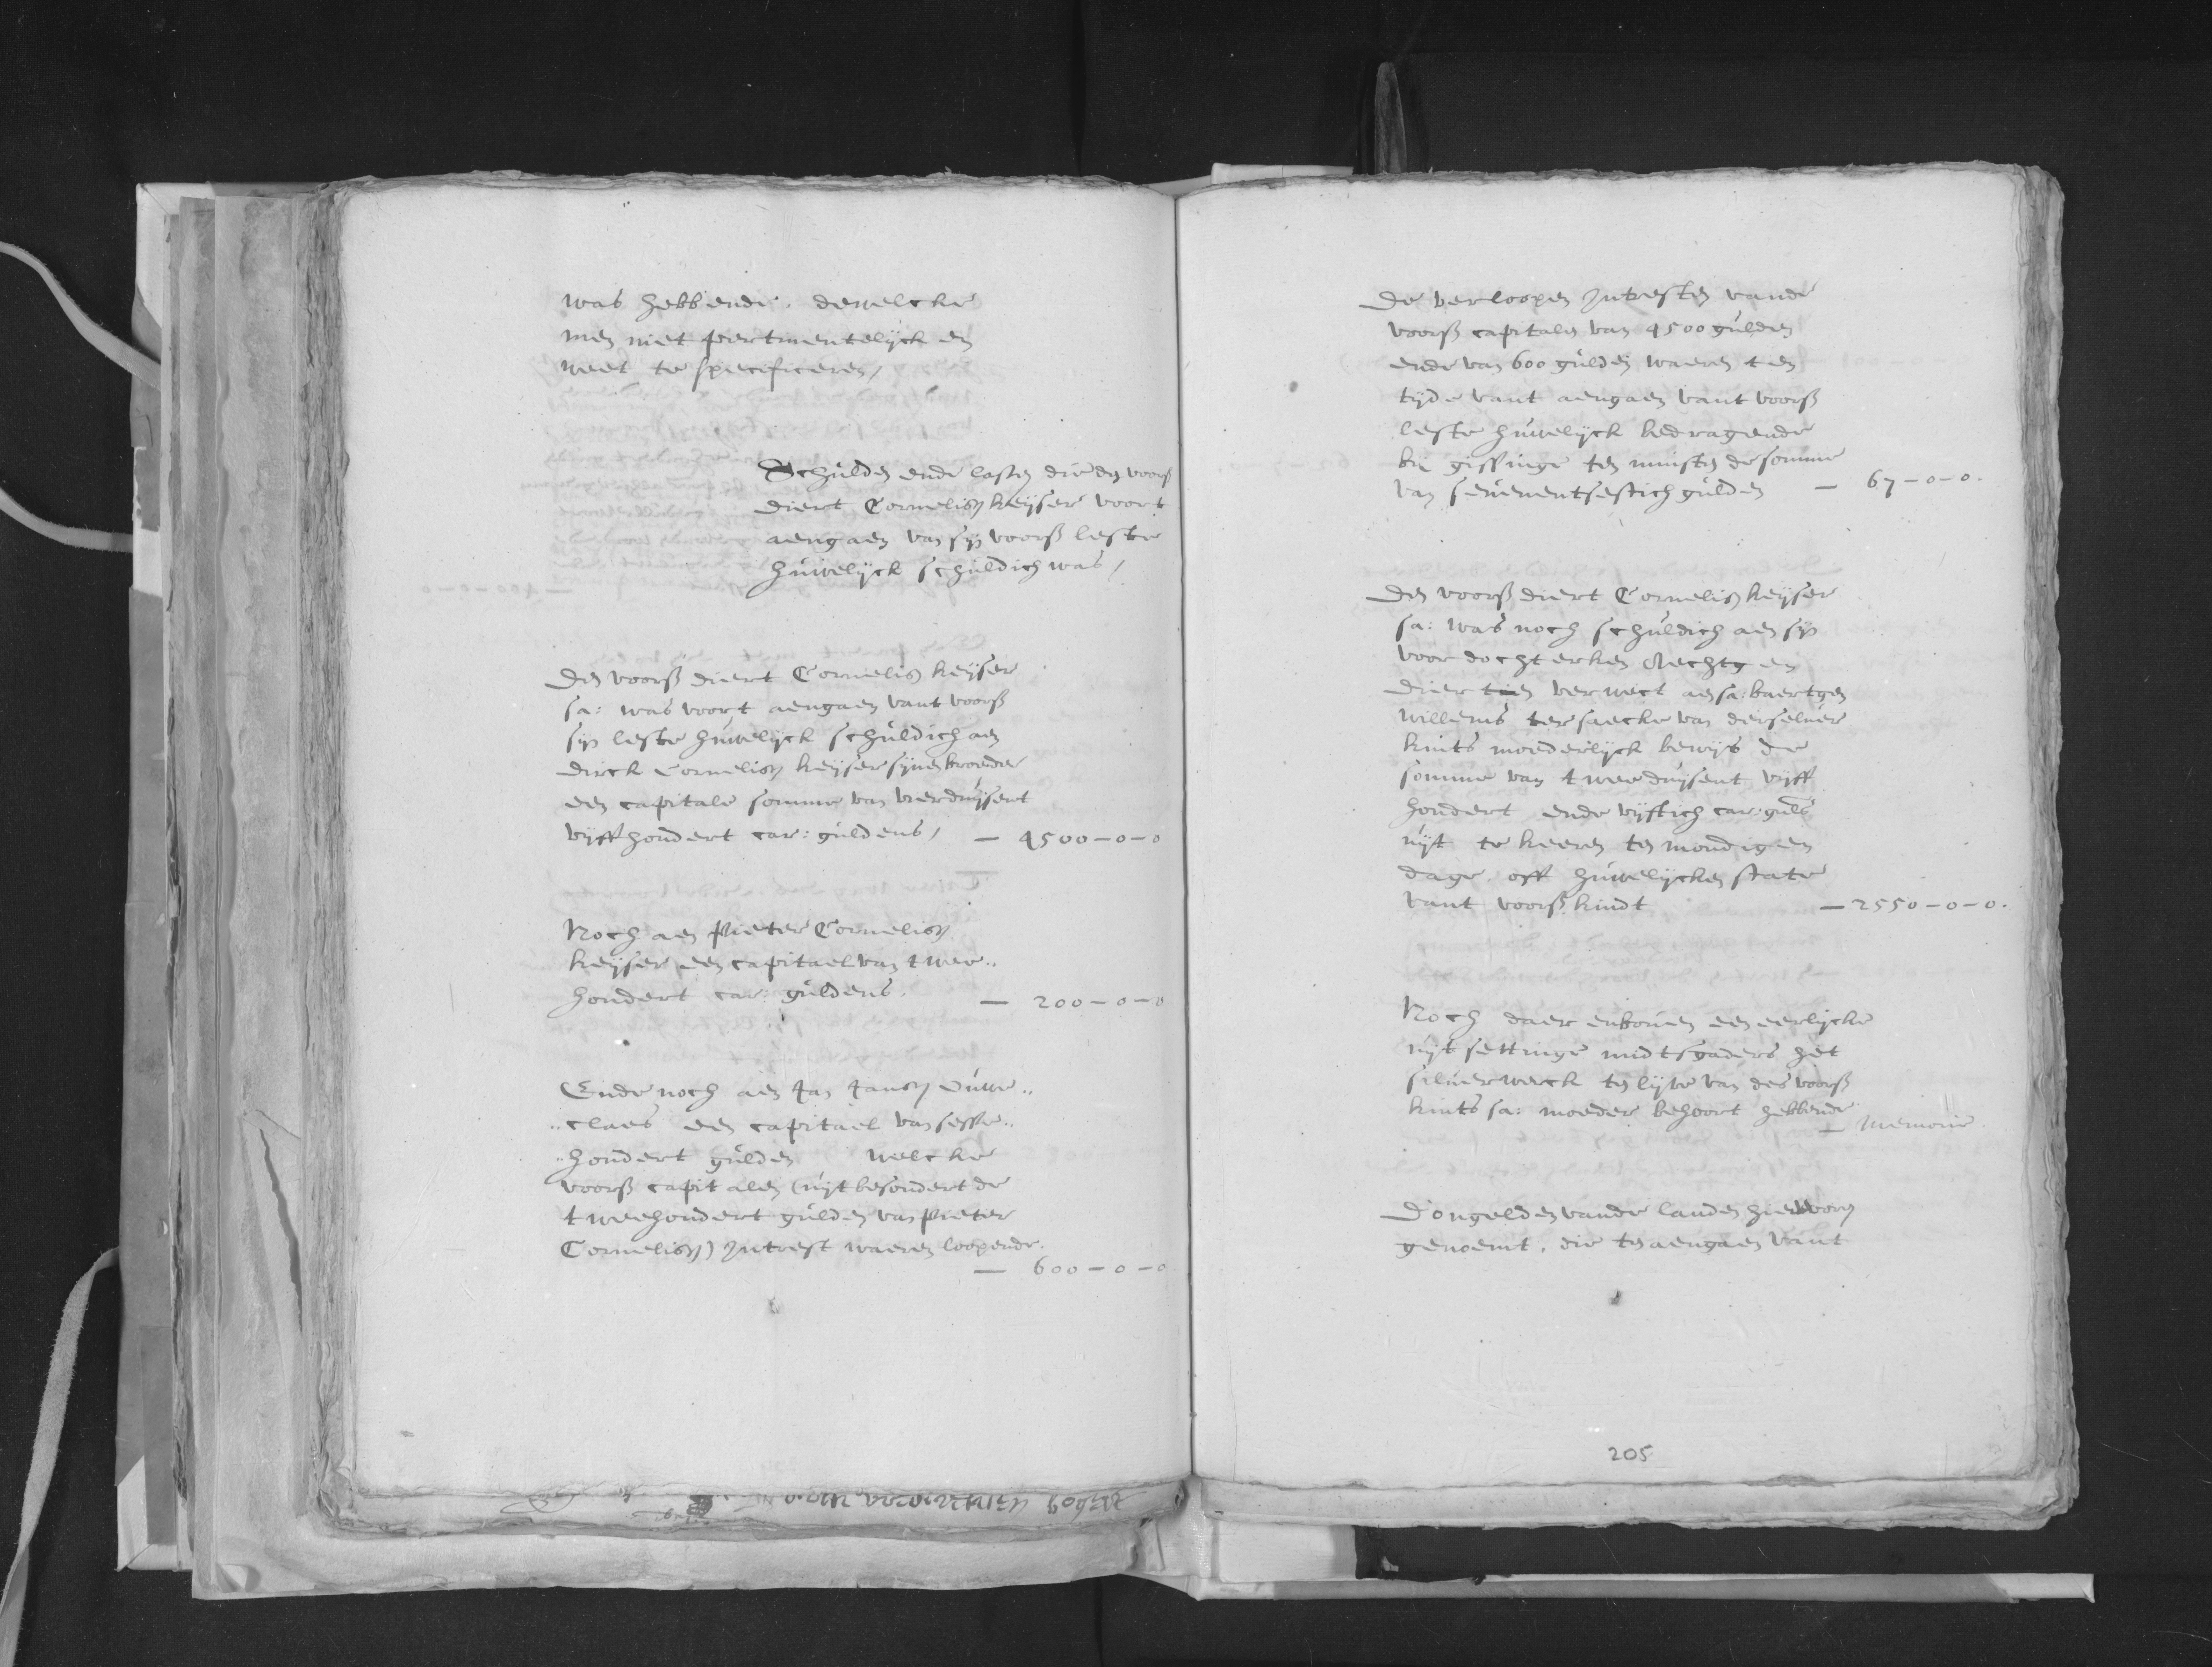 was hebbende. dewelcke
men niet pertinentelijck en
weet te specificeren,
Schulden ende lasten die den voorß
diert Cornelisz keijser voort
aengaen van sijn voorß leste
huwelijck schuldich was,
Den voorß diert Cornelisz keijser
sa: was voort aengaen vant voorß
sijn leste huwelijck schuldich aen
dirck Cornelisz keijser sijnen broeder
een capitale somme van vierduijsent
vijffhondert car: guldens, — 4500-0-0
Noch aen Pieter Cornelisz
keijser een capitael van twee..
hondert car: guldens. — 200-0-0
Ende noch aen Jan Jansz Ouwe..
..claes een capitael van sesse..
..hondert gulden welcke
voorß capitalen (uijtbesondert de
tweehondert gulden van Pieter
Cornelisz) Intrest waeren loopende.
— 600-0-0
De verloopen Intresten vande
voorß capitalen van 4500 gulden
ende van 600 gulden waeren ten
tijde vant aengaen vant voorß
leste huwelijck bedragende
bij gissinge ten minsten de somme
van seuenentsestich gulden — 67-0-0.
Den voorß diert Cornelisz keijser
sa: was noch schuldich aen sijn
voordochterken Aechtgen
dierten verwect aen sa: baertgen
willems ter saecke van deiselver
kints moederlijck bewijs de
somme van tweeduijsent vijff
hondert ende vijftich car: guls
uijt te keeren ten mondigen
dage. off huwelijcken state
vant voorß kindt — 2550-0-0.
Noch daer enboven een eerlijcke
uijtsettinge midtsgaders het
silverwerck ten lijve van des voorß
kints sa: moeder behoort hebbende
— Memorie.
D'ongelden vande landen hier voorn
genoemt, die ten aengaen vant
205